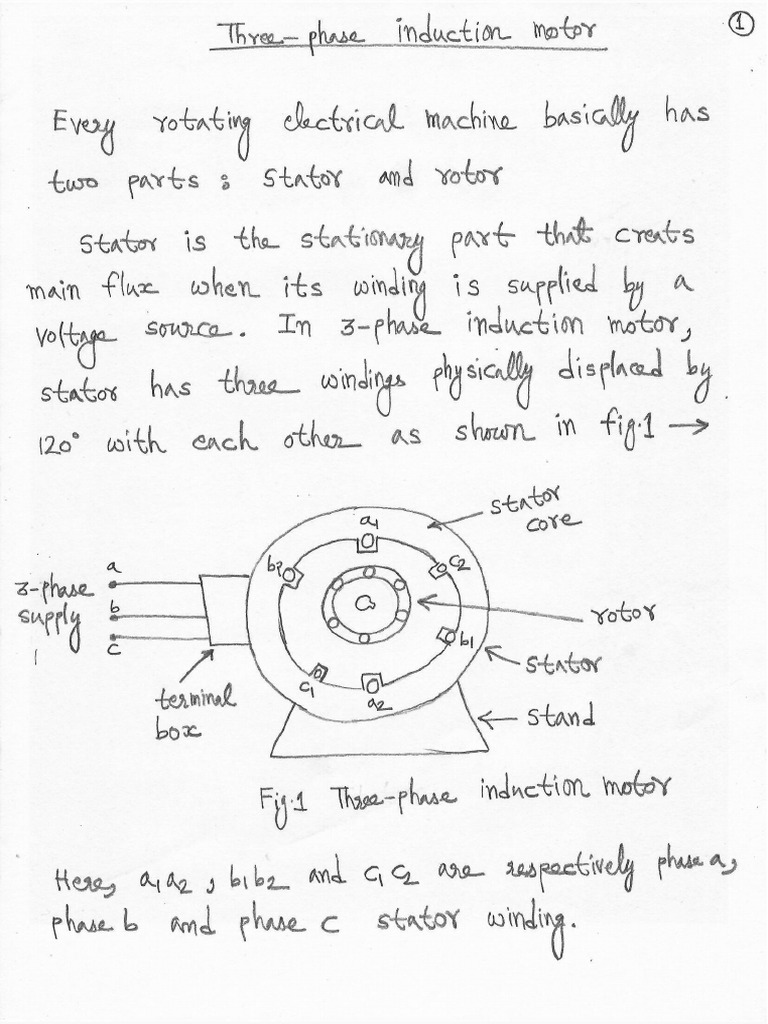 Three-phase induction motor
1
Every rotating electrical machine basically has
two parts : stator and rotor
Stator is the stationary part that creats
main flux when its winding is supplied by a
voltage source. In 3-phase induction motor,
stator has three windings physically displaced by
120° with each other as shown in fig.1 →
stator
core
a1
b2
c2
a
3-phase
supply
b
c
rotor
b1
stator
c1
a2
terminal
box
stand
Fig.1 Three-phase induction motor
Here, a1a2, b1b2 and c1c2 are respectively phase a,
phase b and phase c stator winding.